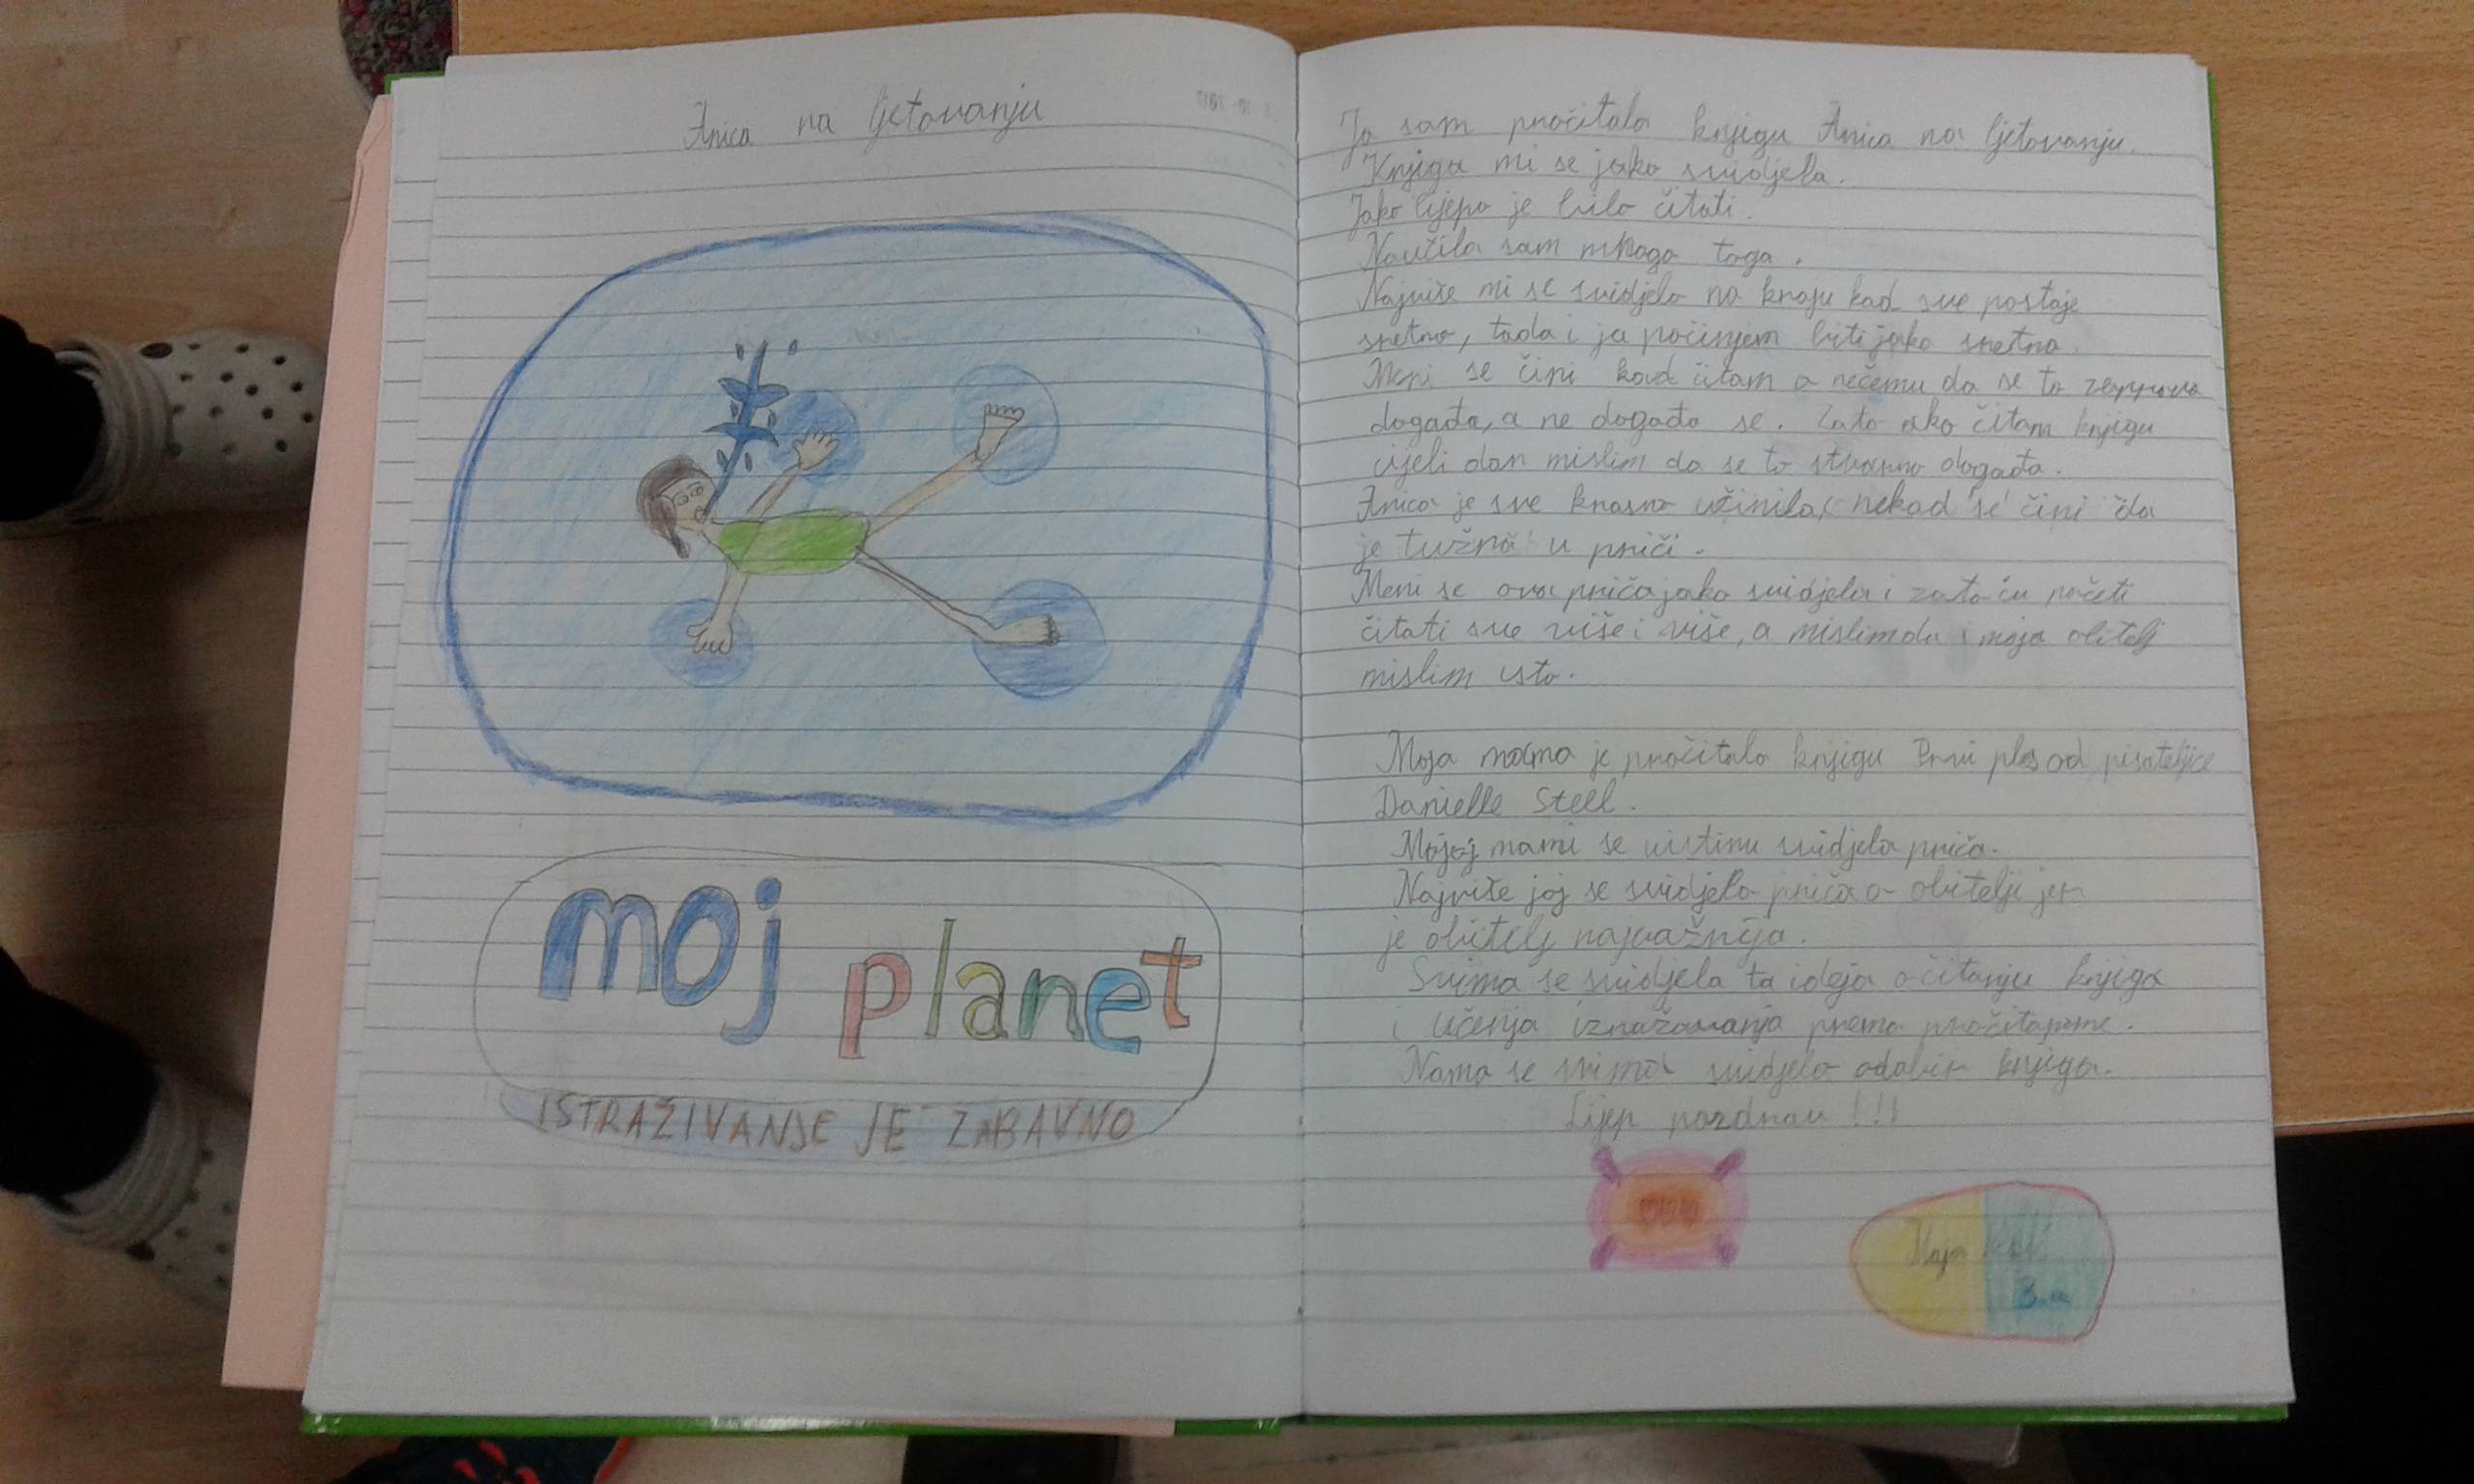 Anica na ljetovanju
moj planet
ISTRAŽIVANJE JE ZABAVNO
Ja sam pročitala knjigu Anica na ljetovanju.
Knjiga mi se jako svidjela.
Jako lijepo je bilo čitati.
Naučila sam mnogo toga.
Najviše mi se svidjelo na kraju kad sve postaje
sretno, tada i ja počinjem biti jako sretna.
Meni se čini kad čitam o nečemu da se to
događa, a ne događa se. Zato ako čitam knjigu
cijeli dan mislim da se to stvarno događa.
Anica je sve krasno učinila, nekad se čini da
je tužna u priči.
Meni se ova priča jako svidjela i zato ću početi
čitati sve više i više, a mislim da i moja obitelj
mislim isto.
Moja mama je pročitala knjigu Prvi ples od pisateljice
Danielle Steel.
Mojoj mami se uistinu svidjela priča.
Najviše joj se svidjela priča o obitelji jer
je obitelj najvažnija.
Svima se svidjela ta ideja o čitanju knjiga
i učenja izražavanja prema pročitanome.
Nama se svima svidjelo odabir knjiga.
Lijep pozdrav!!!
Maja
3.a